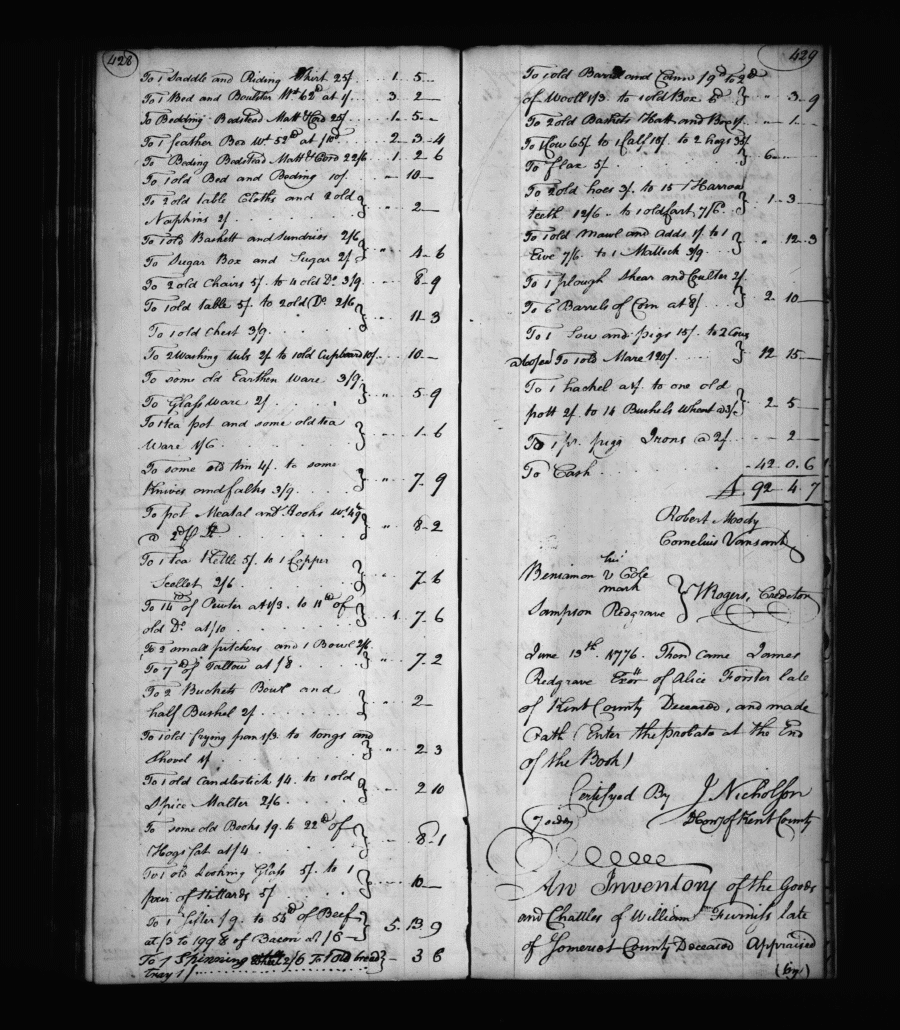 428
To 1 Saddle and Riding Skirt 25/. . . . 1 5 —
To 1 Bed and Boulster Wt 62d at 1/. . . 3 2 —
To Bedding Bedstead Matt & Cord 25/. . . . 1 5 —
To 1 feather Bed Wt 52d at /10d . . . . 2 3 4
To Beding Bedstead Matt & Cord 22/6 . . 1 2 6
To 1 old Bed and Beding 10/. . . . „ 10 —
To 2 old table Cloths and 2 old
Napkins 2/. . . . . . } „ 2 —
To 1 old Baskett and Sundries 2/6
To Sugar Box and Sugar 2/. } „ 4 6
To 2 old Chairs 5/. to 4 old Do. 3/9. . . 8 9
To 1 old table 5/. to 2 old Do. 2/6
To 1 old Chest 3/9. . . . . } 11 3
To 2 Washing tubs 2/. to 1 old Cupboard 10/. . . 10 —
To some old Earthen Ware 3/9.
To Glass Ware 2/. . . . . } „ 5 9
To 1 tea pot and some old tea
Ware 1/6 . . . . . } „ 1 6
To some old tin 4/. to some
Knives and falks 3/9. . . . } „ 7 9
To pot Meatal and Hooks Wt 49
@ 2d . . . . } „ 8 2
To 1 tea Kettle 5/. to 1 Copper
Scollet 2/6 . . . . } 7 6
To 14 d of Pewter at 1/3. to 11 d of
old Do. at /10 . . . . } 1 7 6
To 2 small pitchers and 1 Bowl 2/6
To 7 d of Tallow at /8 . . . } 7 2
To 2 Buckets Bowl and
half Bushel 2/. . . . . . } 2 —
To 1 old frying pan 1/3. to tongs and
Shovel 1/. . . . } „ 2 3
To 1 old Candlestick /4. to 1 old
Spice Malter 2/6 . . . . } 2 10
To some old Books /9. to 22 d of
Hogs fat at /4 . . . . } „ 8 1
To 1 old Looking Glass 5/. to 1
pair of Stillards 5/ . . } 10 —
To 1 Sifter /9. to 54 d of Beef
at /3 to 199 8 of Bacon at /6 — } 5 13 9
To 1 Spinning Wheel 2/6 To 1 old bread
tray 1/ . . . . . . } — 3 6
429
To 1 old Barrel and Cann 19d to 2d
of Wooll 1/3. to 1 old Box 8d } „ 3 9
To 2 old Baskets Hatt and Box 1/. . . „ 1 —
To 1 Cow 65/. to 1 Calf 15/. to 2 hogs 35/
To flax 5/. . . . . } 6 —
To 2 old hoes 3/. to 15 Harrow
teeth 12/6. to 1 old Cart 7/6. } 1 3 —
To 1 old Mawl and Adds 1/. to 1
Eive 7/6. to 1 Mattock 3/9. } „ 12 3
To 1 plough Shear and Coulter 2/
To 6 Barrels of Corn at 8/ } 2 10 —
To 1 Sow and pigs 15/. to 2 Cows
To 1 old Mare 120/. . . } 12 15 —
To 1 hachel 1/. to one old
pott 2/. to 14 Bushels Wheat @ 3/. } 2 5 —
To 1 pr. pigg Irons @ 2/. . . — 2 —
To Cash . . . . . . . 42 0 6
£ 92 4 7
Robert Mody
Cornelius Vansant
his
Beniamon v Cole
mark
Sampson Redgrave } J Rogers, Creditor
June 13th. 1776. Then Came James
Redgrave Exor of Alice Forster late
of Kent County Deceased, and made
Oath (Enter the probate at the End
of the Book)
Certifyed By J Nicholson
DComy of Kent County
An Inventory of the Goods
and Chattles of William Furniss late
of Somerset County Deceased Appraised
(by)